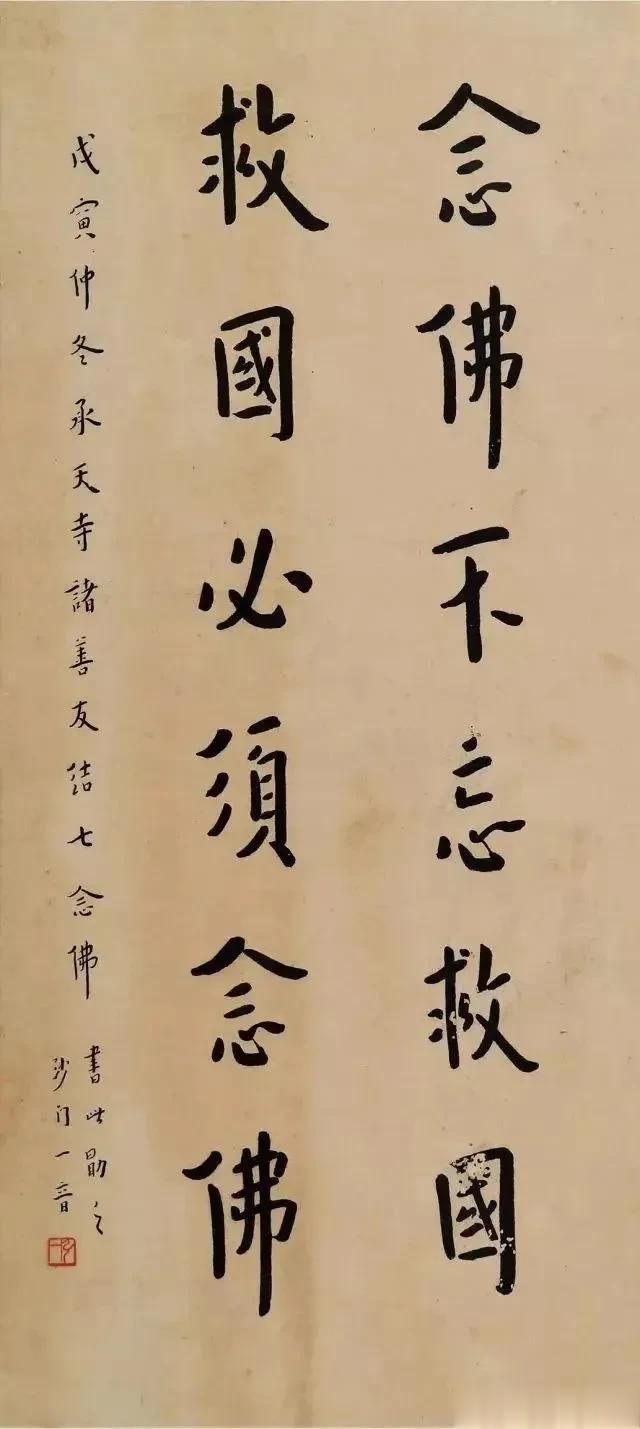 念佛不忘救國
救國必須念佛
戊寅仲冬承天寺諸善友結七念佛
書此勗之
沙门一音